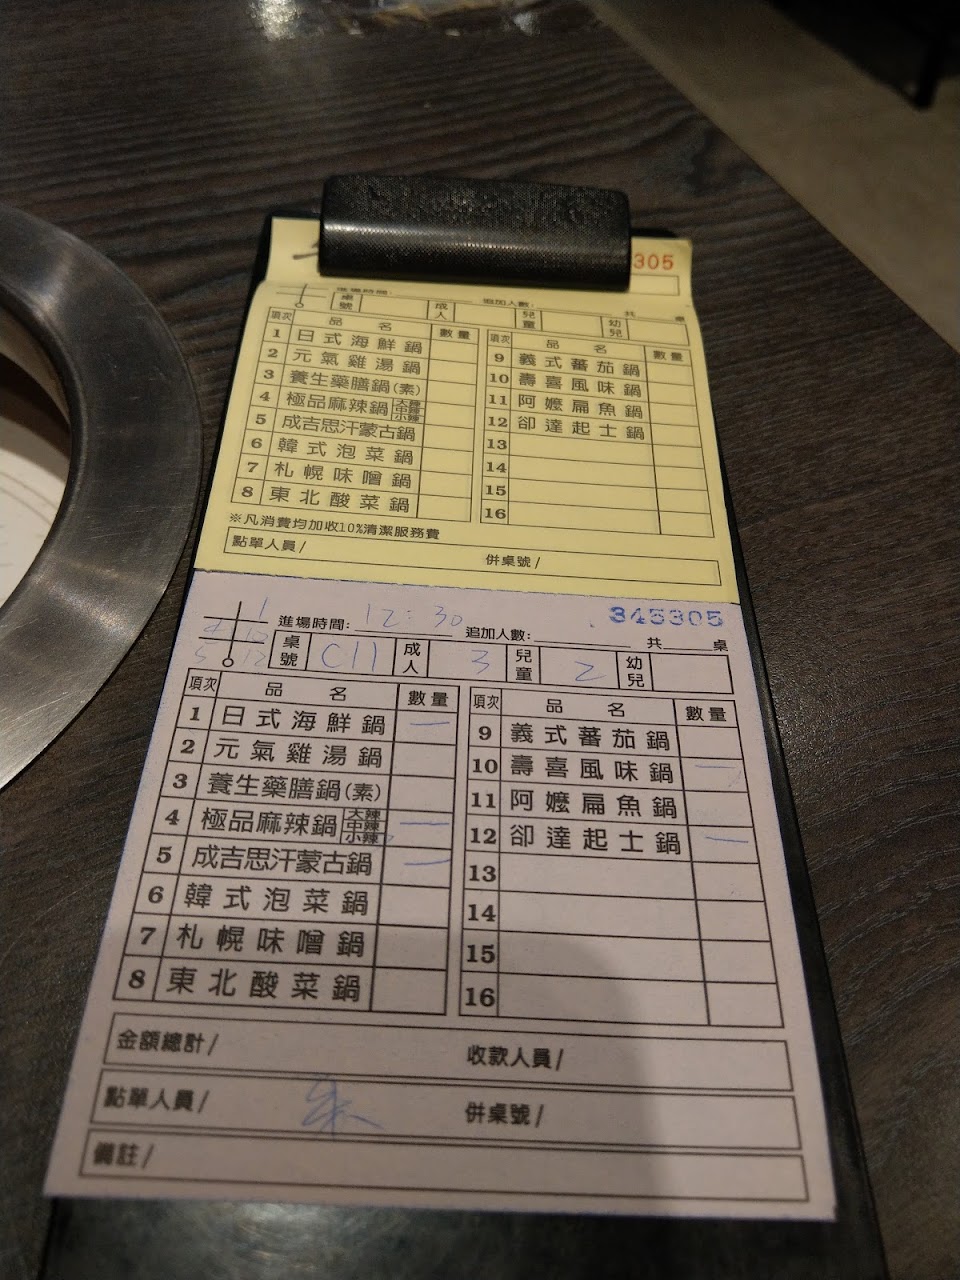 305
進場時間: 追加人數: 共 桌
桌號 成人 兒童 幼兒
項次 品名 數量 項次 品名 數量
1 日式海鮮鍋 9 義式蕃茄鍋
2 元氣雞湯鍋 10 壽喜風味鍋
3 養生藥膳鍋(素) 11 阿嬤扁魚鍋
4 極品麻辣鍋 大辣 中辣 小辣 12 卻達起士鍋
5 成吉思汗蒙古鍋 13
6 韓式泡菜鍋 14
7 札幌味噌鍋 15
8 東北酸菜鍋 16
※凡消費均加收10%清潔服務費
點單人員/ 併桌號/
345305
進場時間: 12:30 追加人數: 共 桌
桌號 C11 成人 3 兒童 2 幼兒
項次 品名 數量 項次 品名 數量
1 日式海鮮鍋 一 9 義式蕃茄鍋
2 元氣雞湯鍋 10 壽喜風味鍋 一
3 養生藥膳鍋(素) 11 阿嬤扁魚鍋
4 極品麻辣鍋 大辣 中辣 小辣 一 12 卻達起士鍋 一
5 成吉思汗蒙古鍋 一 13
6 韓式泡菜鍋 14
7 札幌味噌鍋 15
8 東北酸菜鍋 16
金額總計/ 收款人員/
點單人員/ 併桌號/
備註/